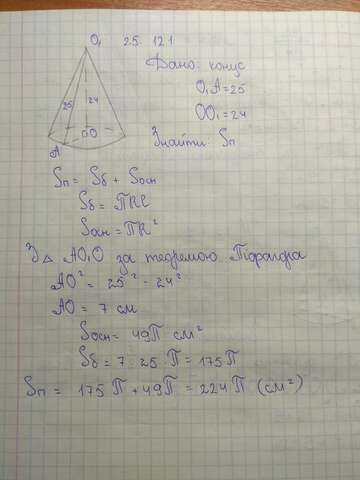 O₁ 25. 121
Дано: конус
O₁A=25
OO₁=24
Знайти: Sп
25
24
O
A
Sп = Sб + Sосн
Sб = ПRl
Sосн = ПR²
З △ AO₁O за теоремою Піфагора
AO² = 25² - 24²
AO = 7 см
Sосн = 49П см²
Sб = 7 · 25 · П = 175П
Sп = 175 П + 49П = 224П (см²)